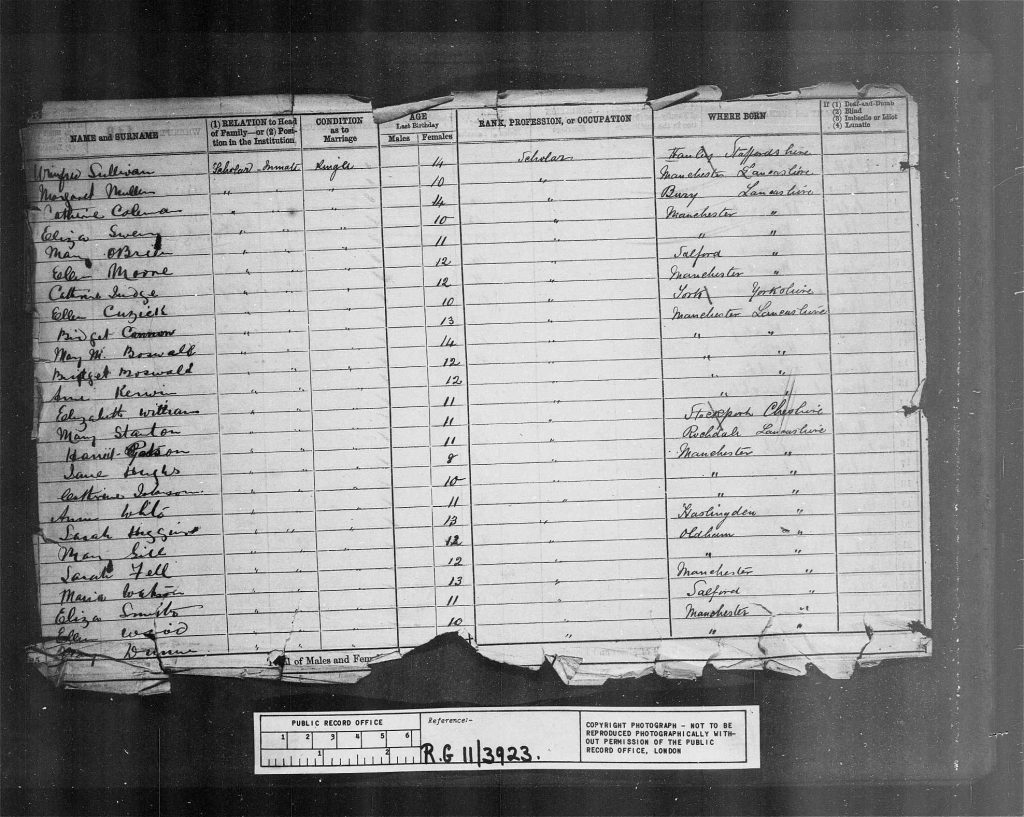 NAME and SURNAME (1) RELATION to Head of Family—or (2) Position in the Institution CONDITION as to Marriage AGE Last Birthday Males Females RANK, PROFESSION, or OCCUPATION WHERE BORN If (1) Deaf-and-Dumb (2) Blind (3) Imbecile or Idiot (4) Lunatic
Sullivan Scholar Inmate Single 14 Scholar Staffordshire
Margaret Mullen " " " 10 " Manchester Lancashire
Catherine " " " 14 " Bury Lancashire
Eliza " " " 10 " Manchester "
Mary OBrien " " " 11 " " "
Ellen Moore " " " 12 " Salford "
Judge " " " 12 " Manchester "
Ellen Cuzick " " " 10 " York Yorkshire
Bridget Cannon " " " 13 " Manchester Lancashire
Mary M. Boswald " " " 14 " " "
Bridget Boswald " " " 12 " " "
Ann Kerwin " " " 12 " " "
Elizabeth " " " 11 " " "
Mary Stanton " " " 11 " Stockport Cheshire
" " " 11 " Rochdale Lancashire
Jane Hughs " " " 8 " Manchester "
" " " 10 " " "
White " " " 11 " " "
Sarah Higgins " " " 13 " Haslingden "
May Gill " " " 12 " Oldham "
Sarah Fell " " " 12 " " "
Maria " " " 13 " Manchester "
Eliza Smith " " " 11 " Salford "
Ellen " " " 10 " Manchester "
Dunne " " " " " "
of Males and
PUBLIC RECORD OFFICE
1 2 3 4 5 6
1 2
Reference:-
R.G 11/3923.
COPYRIGHT PHOTOGRAPH - NOT TO BE
REPRODUCED PHOTOGRAPHICALLY WITH-
OUT PERMISSION OF THE PUBLIC
RECORD OFFICE, LONDON